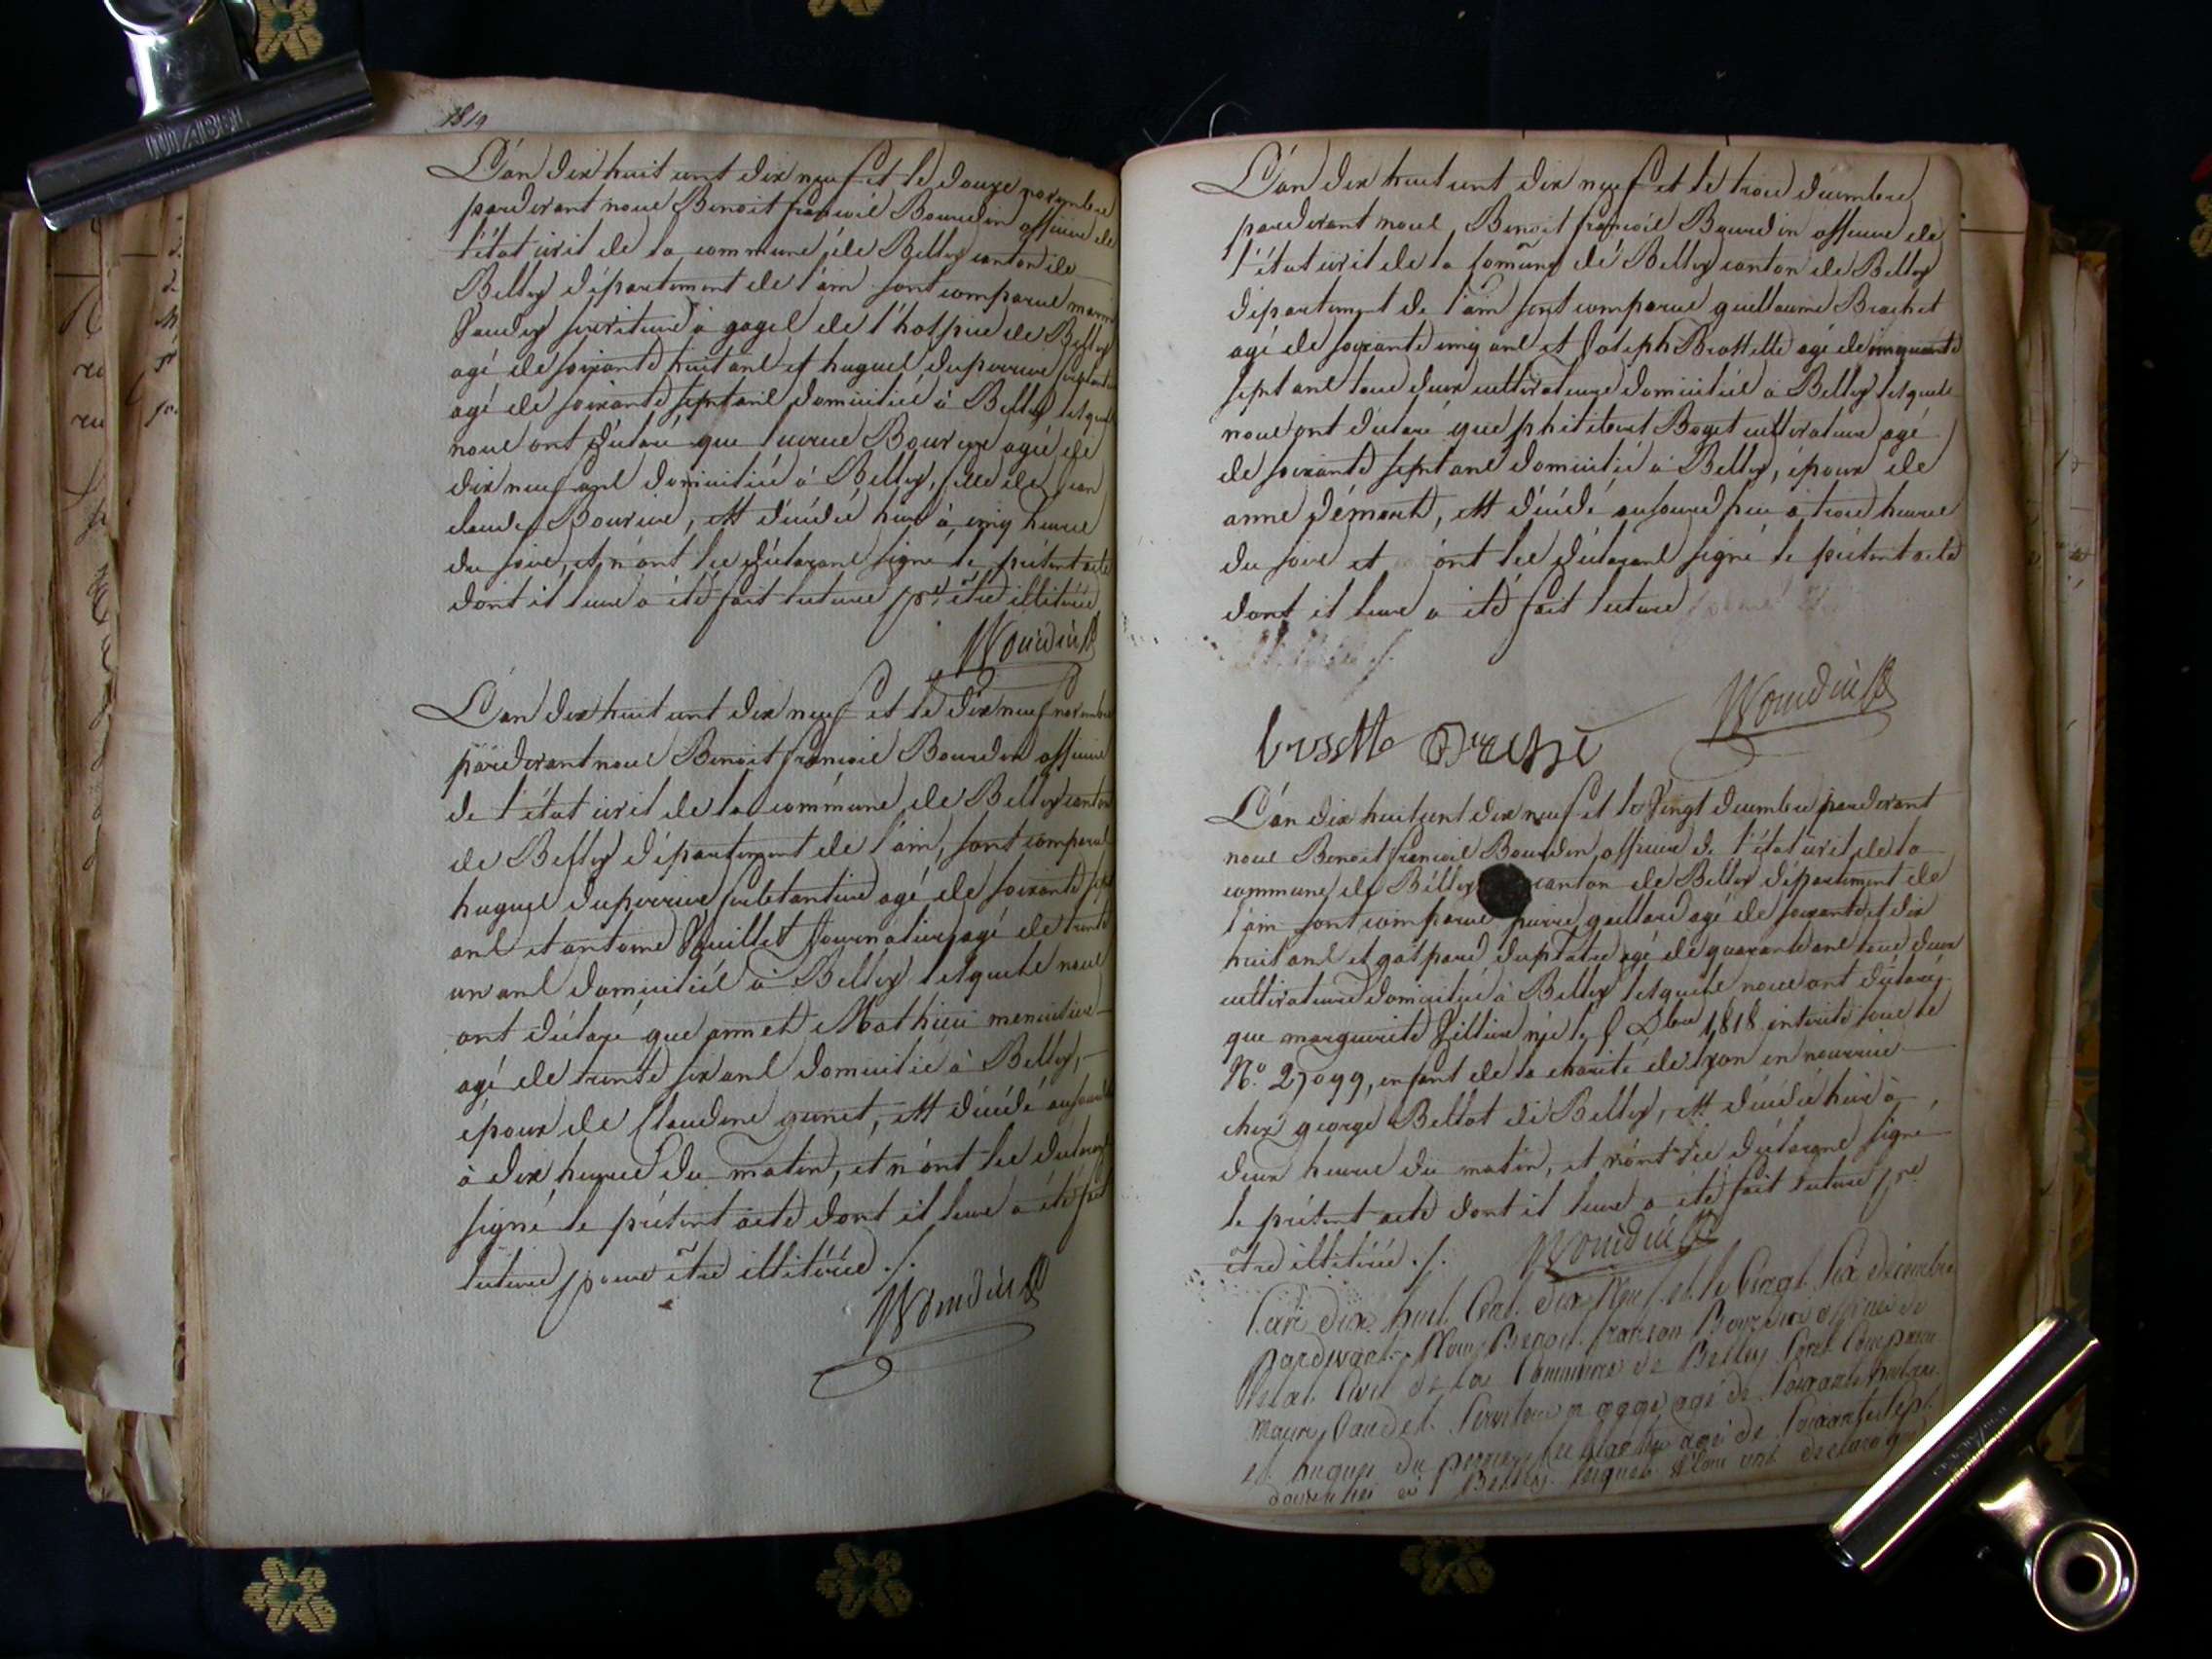 1819
L'an dix huit cent dix neuf et le douze novembre
pardevant nous Benoit françois Bourdin officier de
l'état civil de la commune de Belley canton de
Belley département de l'ain sont comparus
serviteur à gages de l'hospice de Belley
agé de soixante huit ans et hugues duperrier
agé de soixante sept ans domiciliés à Belley lesquels
nous ont déclaré que Bouvier agée de
dix neuf ans domiciliée à Belley, fille de jean
claude Bouvier, est décédée hier à cinq heures
du soir, et n'ont les déclarans signé le présent acte
dont il leur a été fait lecture pr. être illitérés
Bourdin
L'an dix huit cent dix neuf et le dix neuf novembre
pardevant nous Benoit françois Bourdin officier
de l'état civil de la commune de Belley canton
de Belley département de l'ain, sont comparus
hugues duperrier agé de soixante sept
ans et antoine journalier agé de trente
un ans domiciliés à Belley lesquels nous
ont déclaré que Mathieu menuisier
agé de trente six ans domicilié à Belley,
époux de Claudine, est décédé aujourd'hui
à dix heures du matin, et n'ont les déclarans
signé le présent acte dont il leur a été fait
lecture pour être illitérés ./.
Bourdin
L'an dix huit cent dix neuf et le trois décembre
pardevant nous Benoit françois Bourdin officier de
l'état civil de la comune de Belley canton de Belley
département de l'ain sont comparus guillaume Brachet
agé de soixante cinq ans et Joseph Brossette agé de cinquante
sept ans tous deux cultivateurs domiciliés à Belley lesquels
nous ont déclaré que philibert Boget cultivateur agé
de soixante sept ans domicilié à Belley, époux de
anne, est décédé aujourd'hui à trois heures
du soir et ont les déclarans signé le présent acte
dont il leur a été fait lecture
Bourdin
L'an dix huit cent dix neuf et le Vingt décembre pardevant
nous Benoit françois Bourdin officier de l'état civil de la
commune de Belley canton de Belley département de
l'ain sont comparus pierre gaillard agé de soixante et dix
huit ans et gaspard agé de quarante ans tous deux
cultivateurs domiciliés à Belley lesquels nous ont déclaré
que marguerite née le 8bre 1818 sous le
N.o 27099, enfant de la charité de lyon en nourrice
chez george Bellot de Belley, est décédée hier à
deux heures du matin, et n'ont les déclarans signé
le présent acte dont il leur a été fait lecture pr.
être illitérés ./.
Bourdin
L'an dix huit Cent dix Neuf et le Vingt Six décembre
Pardevant Nous Benoit françon Bourdin officier de
letat Civil de la Commune de Belley Sont Comparu
Serviteur a gage agé de Soixante huit ans
et hugues du perrier agé de Soixante et Sept
domicilies a Belley lesquels Nous ont declaré que